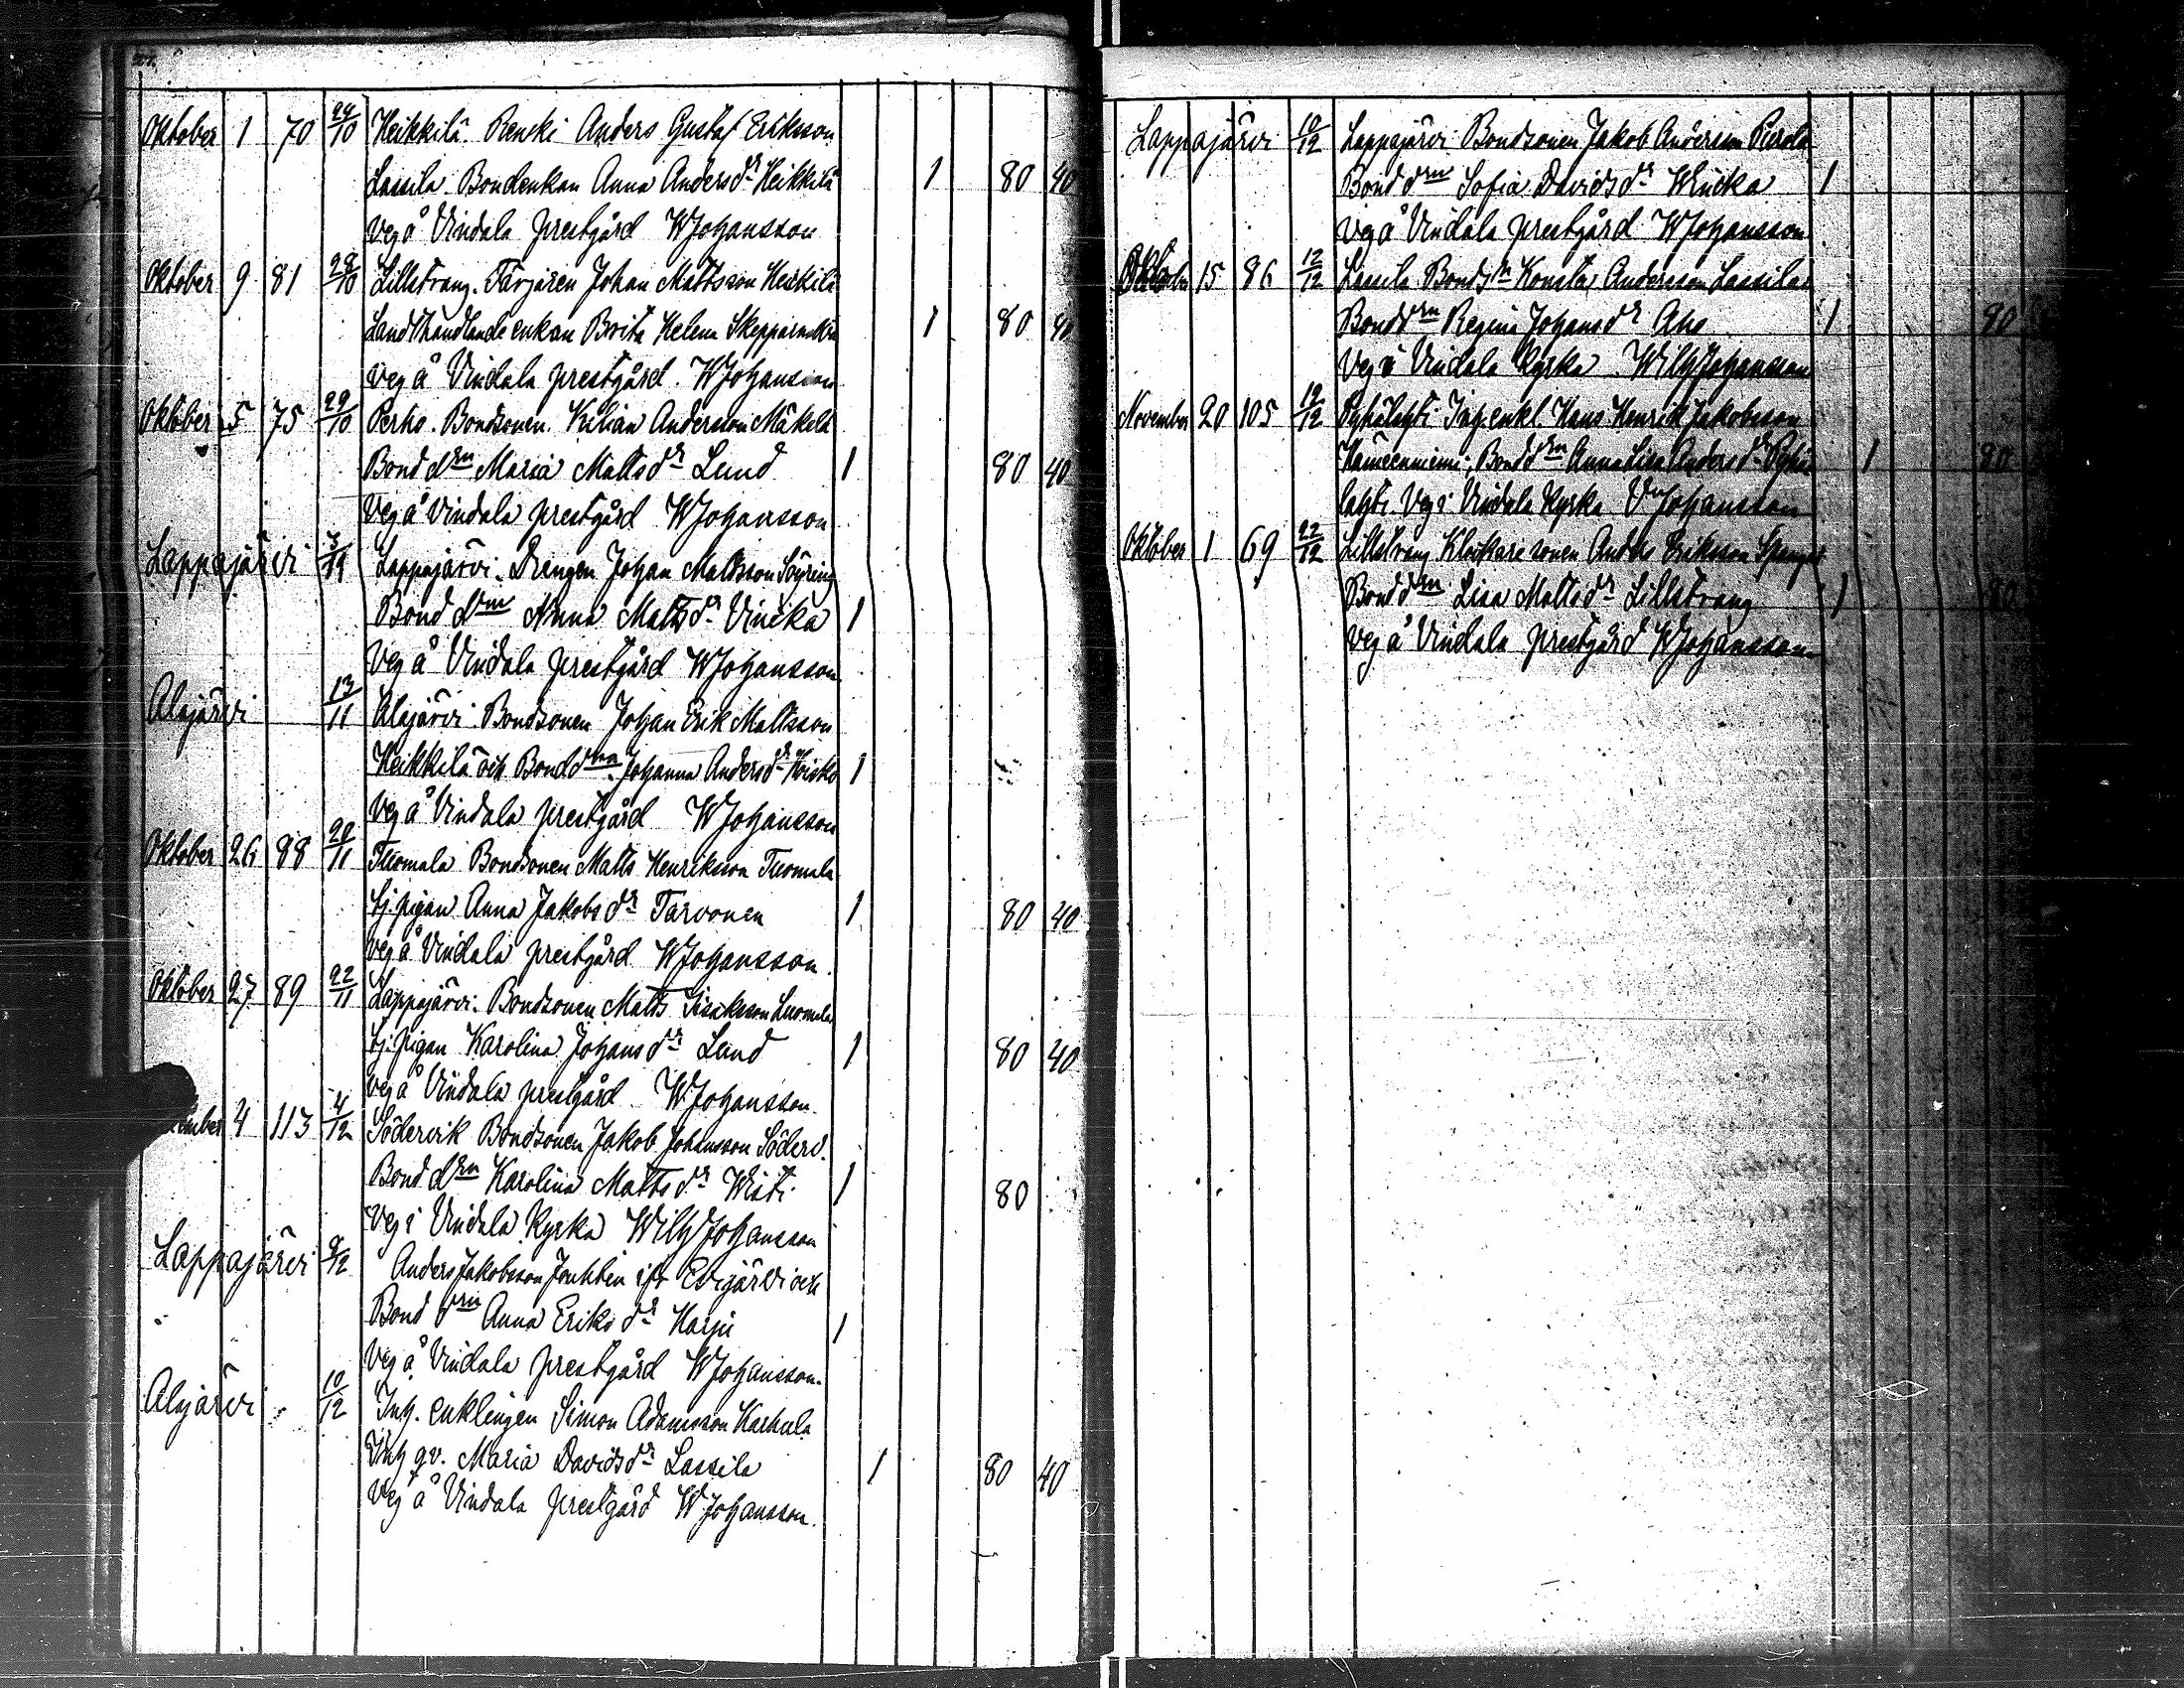 Oktober 1 70 24/10 Heikkilä. Renki Anders Gustaf Eriksson
Lassila Bondenkan Anna Andersdr Heikkilä 1 80 40
Veg å Vindala prestgård WJohansson
Oktober 9 81 28/10 Lillstrang. Färjaren Johan Mattsson Heikkilä
Landthandlande enkan Brita Helena 1 80 40
Veg å Vindala prestgård. WJohansson
Oktober 5 75 29/10 Perho. Bondsonen. Kilian Andersson Mäkelä
Bond drn Maria Mattsdr Lund 1 80 40
Veg å Vindala prestgård WJohansson
Lappajärvi Lappajärvi. Drängen Johan Mattsson
Bond drn Anna Mattsdr Vinika 1
Veg å Vindala prestgård WJohansson
Alajärvi 13/11 Alajärvi Bondsonen Johan Erik Mattsson
Heikkilä och Bonddrn Johanna Andersdr 1
Veg å Vindala prestgård WJohansson
Oktober 26 88 20/11 Tuomala Bondsonen Matts Henriksson Tuomala
tj. pigan Anna Jakobsdr Tarvonen 1 80 40
Veg å Vindala prestgård WJohansson.
Oktober 27 89 22/11 Lappajärvi. Bondsonen Matts Isaksson Luomala
tj. pigan Karolina Johansdr Lund 1 80 40
Veg å Vindala prestgård. WJohansson.
4 113 4/12 Södervik Bondsonen Jakob Johansson Söderv.
Bond drn Karolina Mattsdr Wisti 1 80
Veg i Vindala Kyrka Wilh Johansson
Lappajärvi 9/12 Anders Jakobsson ifr Evijärvi och
Bond drn Anna Eriksdr Harju 1
Veg å Vindala prestgård WJohansson.
Alajärvi 10/12 Inh. enklingen Simon Adamsson Karhula
Inh qv. Maria Davidsdr Lassila 1 80 40
Veg å Vindala prestgård WJohansson.
Lappajärvi 10/12 Lappajärvi Bondsonen Jakob Andersson
Bond drn Sofia Davidsdr Winika 1
Veg å Vindala prestgård WJohansson
Oktober 15 86 12/12 Lassila Bondsn Konsta Andersson Lassila
Bonddrn Regina Johansdr Aho 1 80
Veg i Vindala Kyrka Wilh Johansson
November 20 105 12/12 Pyhälahti Inh. enkl. Hans Henrik Jakobsson
Hameenniemi, Bonddrn Anna Lisa Andersdr Pyhä 1 80
lahti. Veg i Vindala Kyrka Johansson
Oktober 1 69 22/12 Lillstrang Klockare sonen Anders Eriksson
Bond drn Lisa Mattsdr Lillstrang 1 80
Veg å Vindala prestgård WJohansson